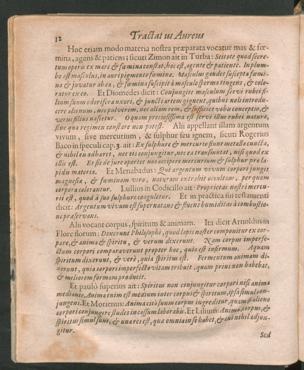 12 Tractatus Aureus
Hoc etiam modo materia nostra præparata vocatur mas & fœ-
mina, agens & patiens; sicuti Zimon ait in Turba: Scitote quod secre-
tum operis ex mare & fœmina constat, hoc est, agente & patiente. In plum-
bo est masculus, in auripigmento fœmina. Masculus gaudet suscepta fœmi-
na & juvatur ab ea, & fœmina suscipit à masculo sperma tingens, & colo-
ratur ex eo. Et Diomedes dicit: Conjungite masculum servi rubei fi-
lium suæ odoriferæ uxori, & juncti artem gignent, quibus nolite introdu-
cere alienum, nec pulverem, nec aliam rem, & sufficiet vobis conceptio, &
verus filius nascetur. O quam preciosissima est servi illius rubei natura,
sine qua regimen constare non potest. Alii appellant illam argentum
vivum, sive mercurium, & sulphur sive ignem, sicuti Rogerius
Baco in speculi cap. 3. ait: Ex sulphure & mercurio sunt metalla cuncta,
& nihil eis adhæret, nec eis conjungitur, nec ea transmutat, nisi quod ex
illis est. Et sic de jure oportet nos accipere mercurium & sulphur pro la-
pidis materia. Et Menabadus: Qui argentum vivum corpori jungit
magnesiæ, & fœminam viro, naturam extrahit occultam, per quam
corpora colorantur. Lullius in Codicillo ait: Proprietas nostri mercu-
rii est, quod à suo sulphure coaguletur. Et in practica sui testamenti
dicit: Argentum vivum est
Alii vocant corpus, spiritum & animam. Ita dicit Arnoldus in
Flore florum: Dixerunt Philosophi, quod lapis noster componitur ex cor-
pore, & anima & spiritu, & verum dixerunt. Nam corpus imperfe-
ctum corpori compararunt propter hoc, quia est infirmum. Aquam
spiritum dixerunt, & verè, quia spiritus est. Fermentum animam di-
xerunt, quia corpori imperfecto vitam tribuit, quam prius non habebat,
& meliorem formam producit.
Et paulò superius ait: Spiritus non conjungitur corpori nisi anima
mediante. Anima enim est medium inter corpus & spiritum, ipsos simul con-
jungens. Et Morienus: Anima citò suum corpus ingreditur, quam si alieno
corpori conjungere studes in cassum laborabis. Et Lilium: Anima, corpus, &
spiritus simul sunt, & una res est, quæ omnia in se habet, & cui nihil adjun-
gitur.
Sed